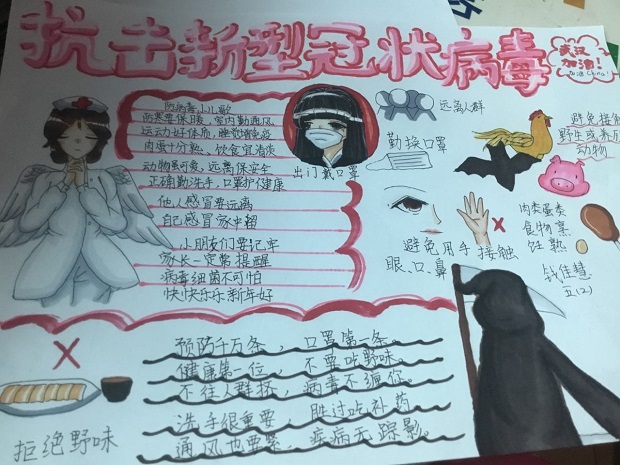 抗击新型冠状病毒
武汉
加油!
加油China!
防病毒小儿歌
防寒要保暖,室内勤通风
运动好体质,睡觉增免疫
肉蛋十分熟,饮食宜清淡
动物虽可爱,远离保安全
正确勤洗手,口罩护健康
他人感冒要远离
自己感冒家中留
小朋友们要记牢
家长一定常提醒
病毒细菌不可怕
快快乐乐新年好
出门戴口罩
远离人群
勤换口罩
避免接触
野生或养殖
动物
避免用手接触
眼、口、鼻
肉类蛋类
食物烹
饪熟
钱佳慧
五(2)
预防千万条,口罩第一条。
健康第一位,不要吃野味。
不往人群挤,病毒不缠你。
洗手很重要,胜过吃补药
通风也要紧,疾病无踪影。
拒绝野味